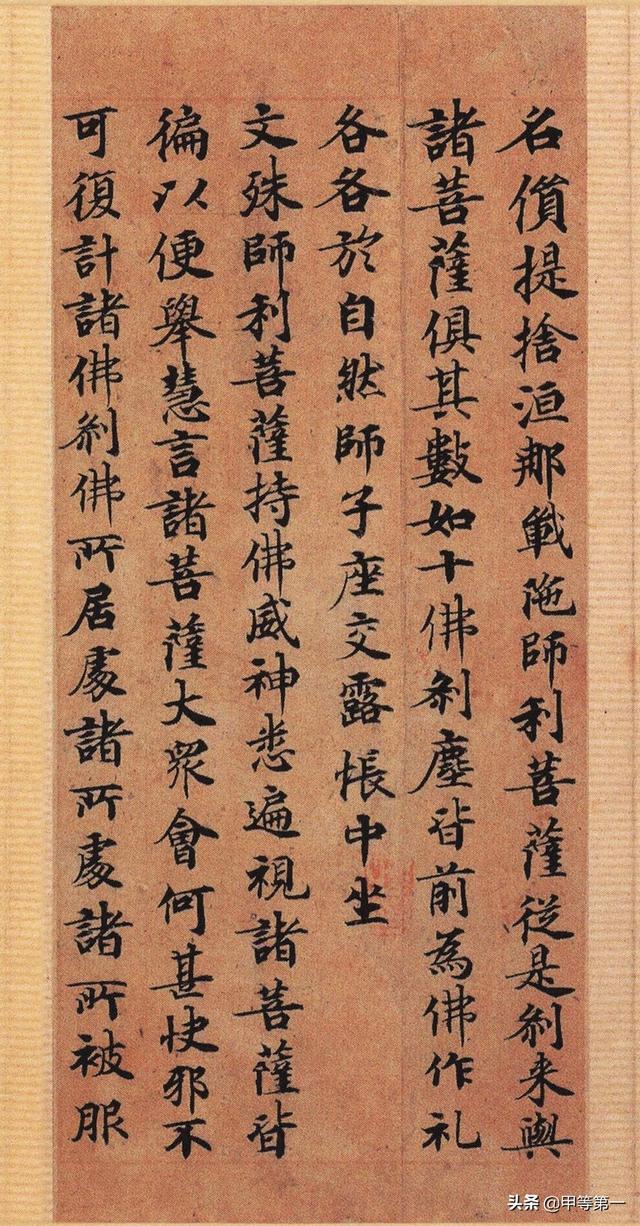 名質提捨洹那戰陁師利菩薩從是刹来與
諸菩薩俱其數如十佛刹塵皆前為佛作礼
各各於自然師子座交露帳中坐
文殊師利菩薩持佛威神悉遍視諸菩薩皆
徧以便舉慧言諸菩薩大眾會何甚快邪不
可復計諸佛刹佛所居處諸所處諸所被服
头条 @甲等第一